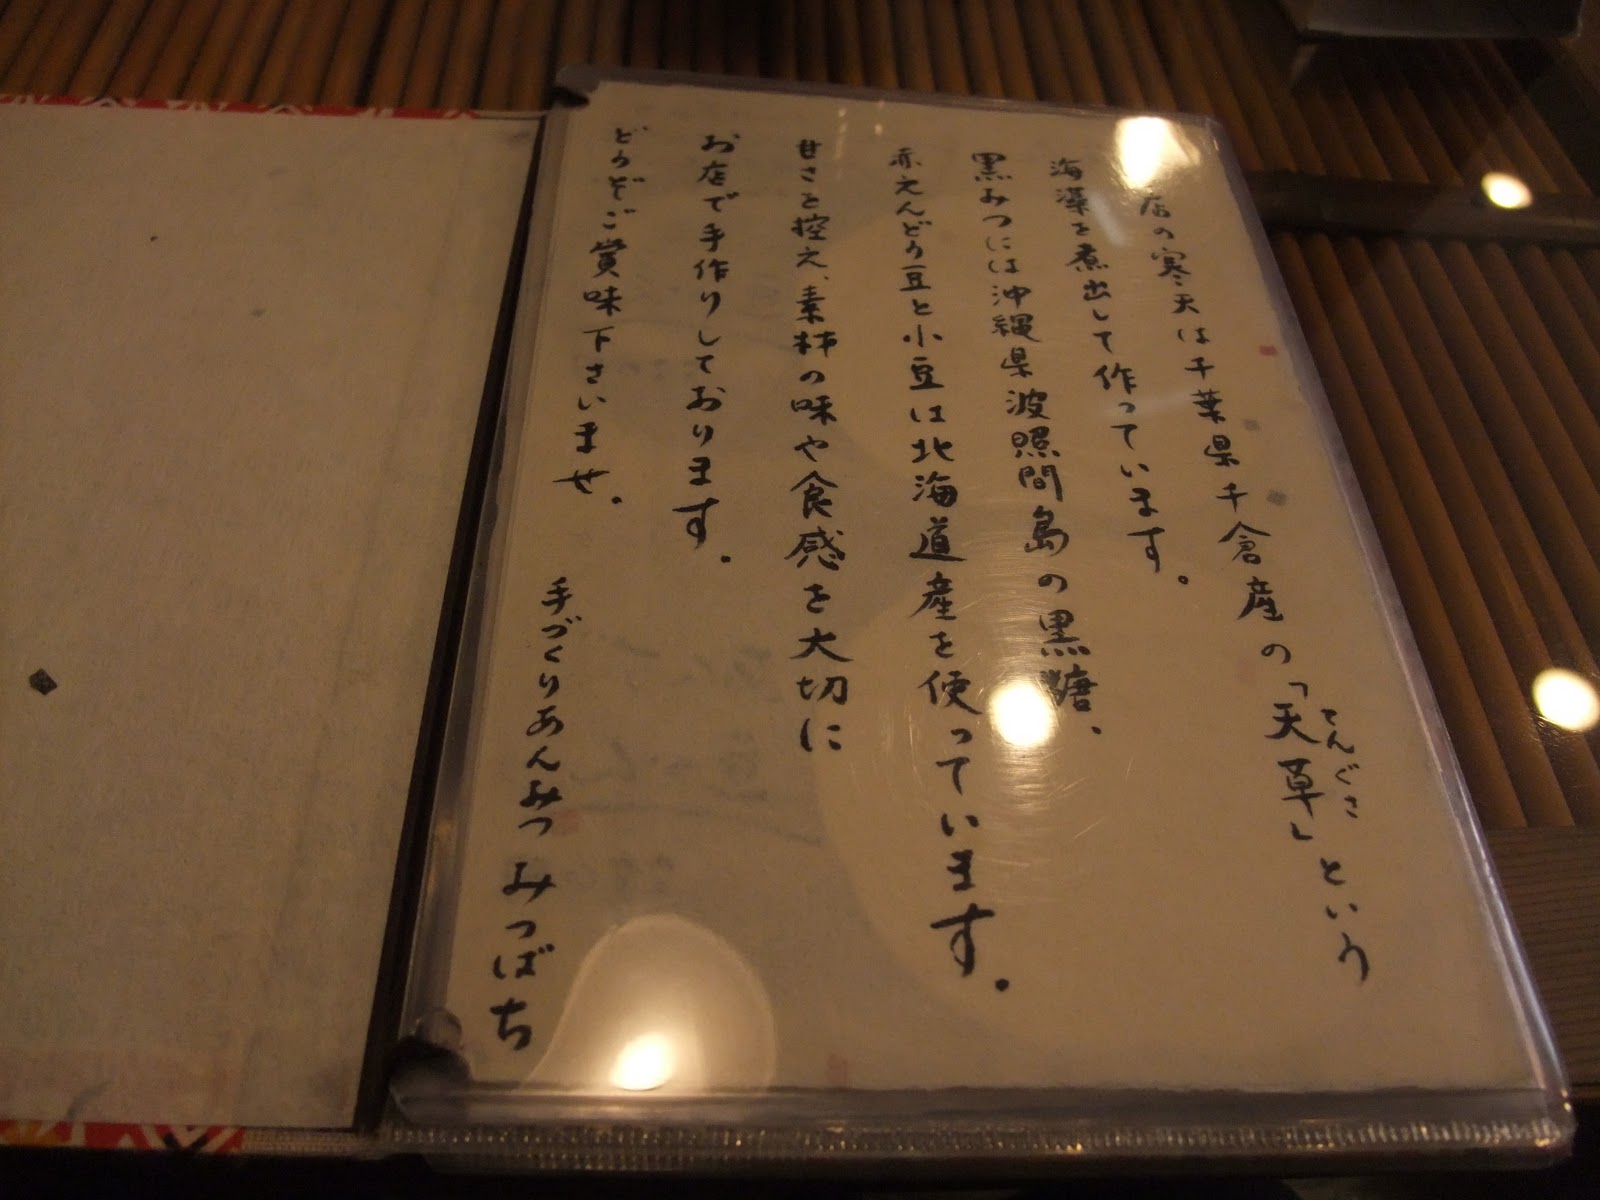 店の寒天は千葉県千倉産の「天草」という
てんぐさ
海藻を煮出して作っています。
黒みつには沖縄県波照間島の黒糖、
赤えんどう豆と小豆は北海道産を使っています。
甘さを控え、素材の味や食感を大切に
お店で手作りしております。
どうぞご賞味下さいませ。
手づくりあんみつ みつばち